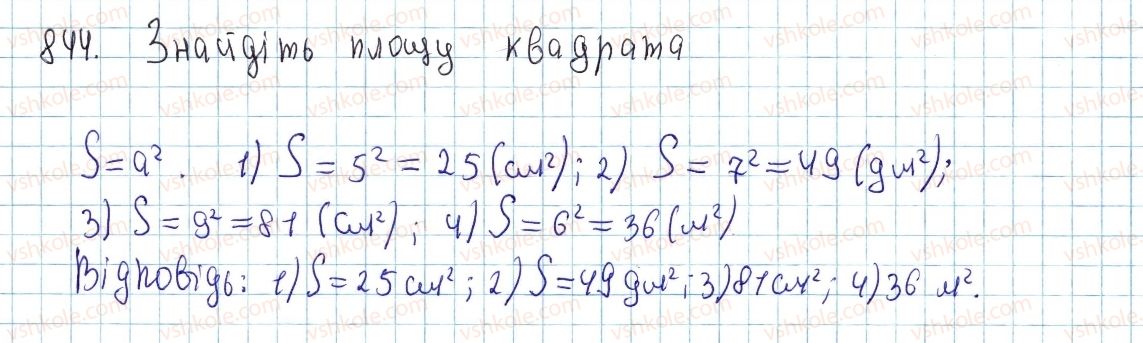 844. Знайдіть площу квадрата
S = a². 1) S = 5² = 25 (см²); 2) S = 7² = 49 (дм²);
3) S = 9² = 81 (см²); 4) S = 6² = 36 (м²)
Відповідь: 1) S = 25 см²; 2) S = 49 дм²; 3) 81 см²; 4) 36 м².